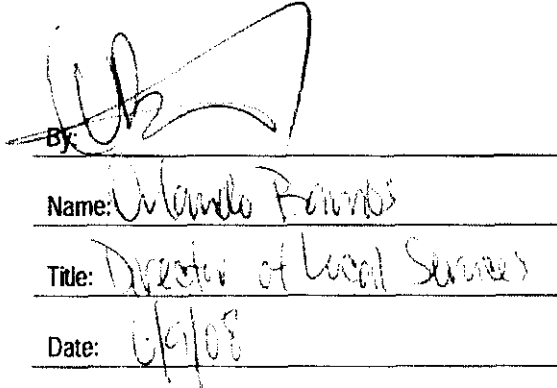 By:
Name: Orlando
Title: Director of Local Services
Date: 6/9/08